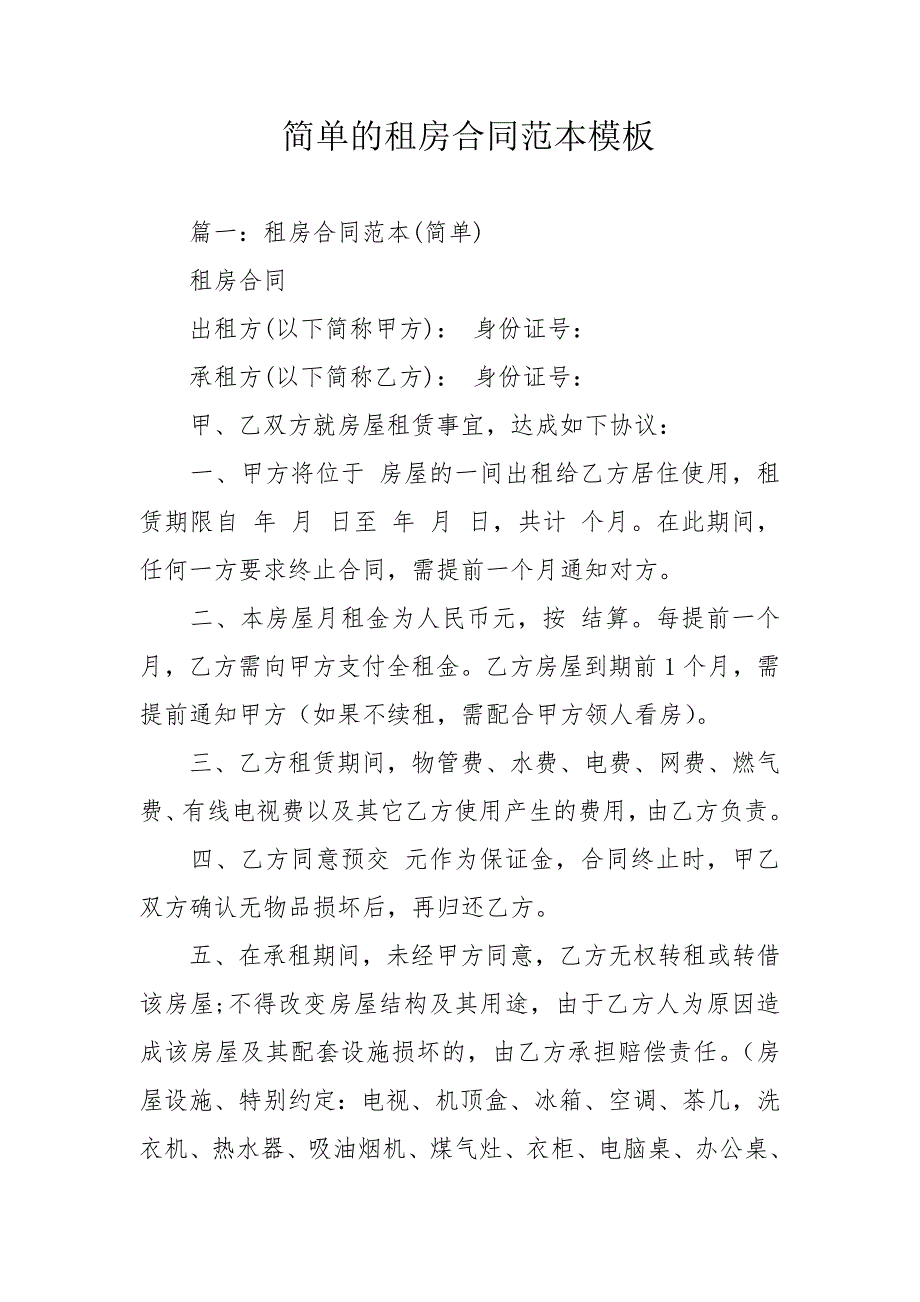 简单的租房合同范本模板
篇一：租房合同范本(简单)
租房合同
出租方(以下简称甲方)： 身份证号：
承租方(以下简称乙方)： 身份证号：
甲、乙双方就房屋租赁事宜，达成如下协议：
一、甲方将位于 房屋的一间出租给乙方居住使用，租
赁期限自 年 月 日至 年 月 日，共计 个月。在此期间，
任何一方要求终止合同，需提前一个月通知对方。
二、本房屋月租金为人民币元，按 结算。每提前一个
月，乙方需向甲方支付全租金。乙方房屋到期前1个月，需
提前通知甲方（如果不续租，需配合甲方领人看房）。
三、乙方租赁期间，物管费、水费、电费、网费、燃气
费、有线电视费以及其它乙方使用产生的费用，由乙方负责。
四、乙方同意预交 元作为保证金，合同终止时，甲乙
双方确认无物品损坏后，再归还乙方。
五、在承租期间，未经甲方同意，乙方无权转租或转借
该房屋;不得改变房屋结构及其用途，由于乙方人为原因造
成该房屋及其配套设施损坏的，由乙方承担赔偿责任。（房
屋设施、特别约定：电视、机顶盒、冰箱、空调、茶几，洗
衣机、热水器、吸油烟机、煤气灶、衣柜、电脑桌、办公桌、